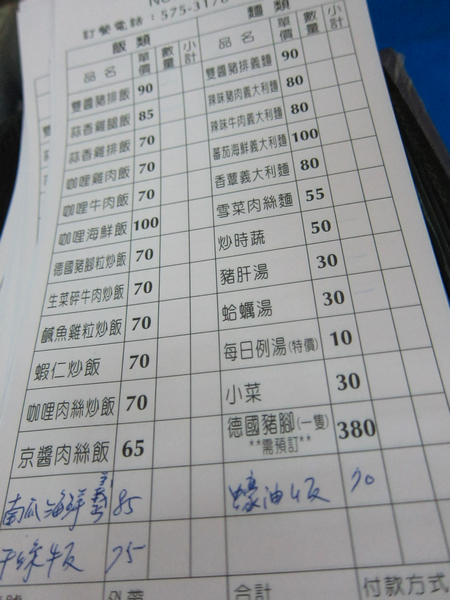 訂餐電話：575-3178
飯類 單價 數量 小計 麵類 單價 數量 小計
品名 品名
雙國豬排飯 90 雙國豬排義麵 90
蒜香雞腿飯 85 辣味豬肉義大利麵 80
蒜香雞排飯 70 辣味牛肉義大利麵 80
咖哩雞肉飯 70 蕃茄海鮮義大利麵 100
咖哩牛肉飯 70 香蕈義大利麵 80
咖哩海鮮飯 100 雪菜肉絲麵 55
德國豬腳粒炒飯 70 炒時蔬 50
生菜碎牛肉炒飯 70 豬肝湯 30
鹹魚雞粒炒飯 70 蛤蠣湯 30
蝦仁炒飯 70 每日例湯(特價) 10
咖哩肉絲炒飯 70 小菜 30
京醬肉絲飯 65 德國豬腳(一隻) 380
**需預訂**
南瓜海鮮義 85 蠔油板 70
干絲牛板 75
合計 付款方式